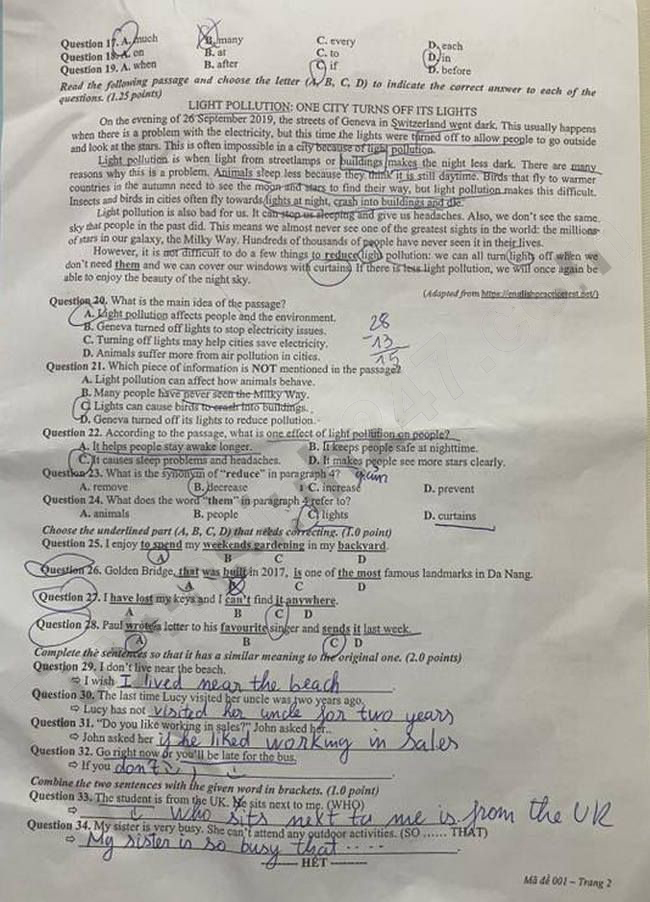 Question 17. A. much B. many C. every D. each
Question 18. A. on B. at C. to D. in
Question 19. A. when B. after C. if D. before
Read the following passage and choose the letter (A, B, C, D) to indicate the correct answer to each of the
questions. (1.25 points)
LIGHT POLLUTION: ONE CITY TURNS OFF ITS LIGHTS
On the evening of 26 September 2019, the streets of Geneva in Switzerland went dark. This usually happens
when there is a problem with the electricity, but this time the lights were turned off to allow people to go outside
and look at the stars. This is often impossible in a city because of light pollution.
Light pollution is when light from streetlamps or buildings makes the night less dark. There are many
reasons why this is a problem. Animals sleep less because they think it is still daytime. Birds that fly to warmer
countries in the autumn need to see the moon and stars to find their way, but light pollution makes this difficult.
Insects and birds in cities often fly towards lights at night, crash into buildings and die.
Light pollution is also bad for us. It can stop us sleeping and give us headaches. Also, we don't see the same
sky that people in the past did. This means we almost never see one of the greatest sights in the world: the millions
of stars in our galaxy, the Milky Way. Hundreds of thousands of people have never seen it in their lives.
However, it is not difficult to do a few things to reduce light pollution: we can all turn lights off when we
don't need them and we can cover our windows with curtains. If there is less light pollution, we will once again be
able to enjoy the beauty of the night sky.
(Adapted from https://englishpracticetest.net/)
Question 20. What is the main idea of the passage?
A. Light pollution affects people and the environment.
B. Geneva turned off lights to stop electricity issues.
C. Turning off lights may help cities save electricity.
D. Animals suffer more from air pollution in cities.
28
13
15
Question 21. Which piece of information is NOT mentioned in the passage?
A. Light pollution can affect how animals behave.
B. Many people have never seen the Milky Way.
C. Lights can cause birds to crash into buildings.
D. Geneva turned off its lights to reduce pollution.
Question 22. According to the passage, what is one effect of light pollution on people?
A. It helps people stay awake longer. B. It keeps people safe at nighttime.
C. It causes sleep problems and headaches. D. It makes people see more stars clearly.
Question 23. What is the synonym of "reduce" in paragraph 4? giảm
A. remove B. decrease C. increase D. prevent
Question 24. What does the word "them" in paragraph 4 refer to?
A. animals B. people C. lights D. curtains
Choose the underlined part (A, B, C, D) that needs correcting. (1.0 point)
Question 25. I enjoy to spend my weekends gardening in my backyard.
A B C D
Question 26. Golden Bridge, that was built in 2017, is one of the most famous landmarks in Da Nang.
A B C D
Question 27. I have lost my keys and I can't find it anywhere.
A B C D
Question 28. Paul wrote a letter to his favourite singer and sends it last week.
A B C D
Complete the sentences so that it has a similar meaning to the original one. (2.0 points)
Question 29. I don't live near the beach.
⇨ I wish I lived near the beach.
Question 30. The last time Lucy visited her uncle was two years ago.
⇨ Lucy has not visited her uncle for two years
Question 31. "Do you like working in sales?" John asked her.
⇨ John asked her if he liked working in sales
Question 32. Go right now or you'll be late for the bus.
⇨ If you don't
Combine the two sentences with the given word in brackets. (1.0 point)
Question 33. The student is from the UK. He sits next to me. (WHO)
⇨ who sits next to me is from the UK
Question 34. My sister is very busy. She can't attend any outdoor activities. (SO ...... THAT)
⇨ My sister is so busy that ....
---------- HẾT ----------
Mã đề 001 – Trang 2